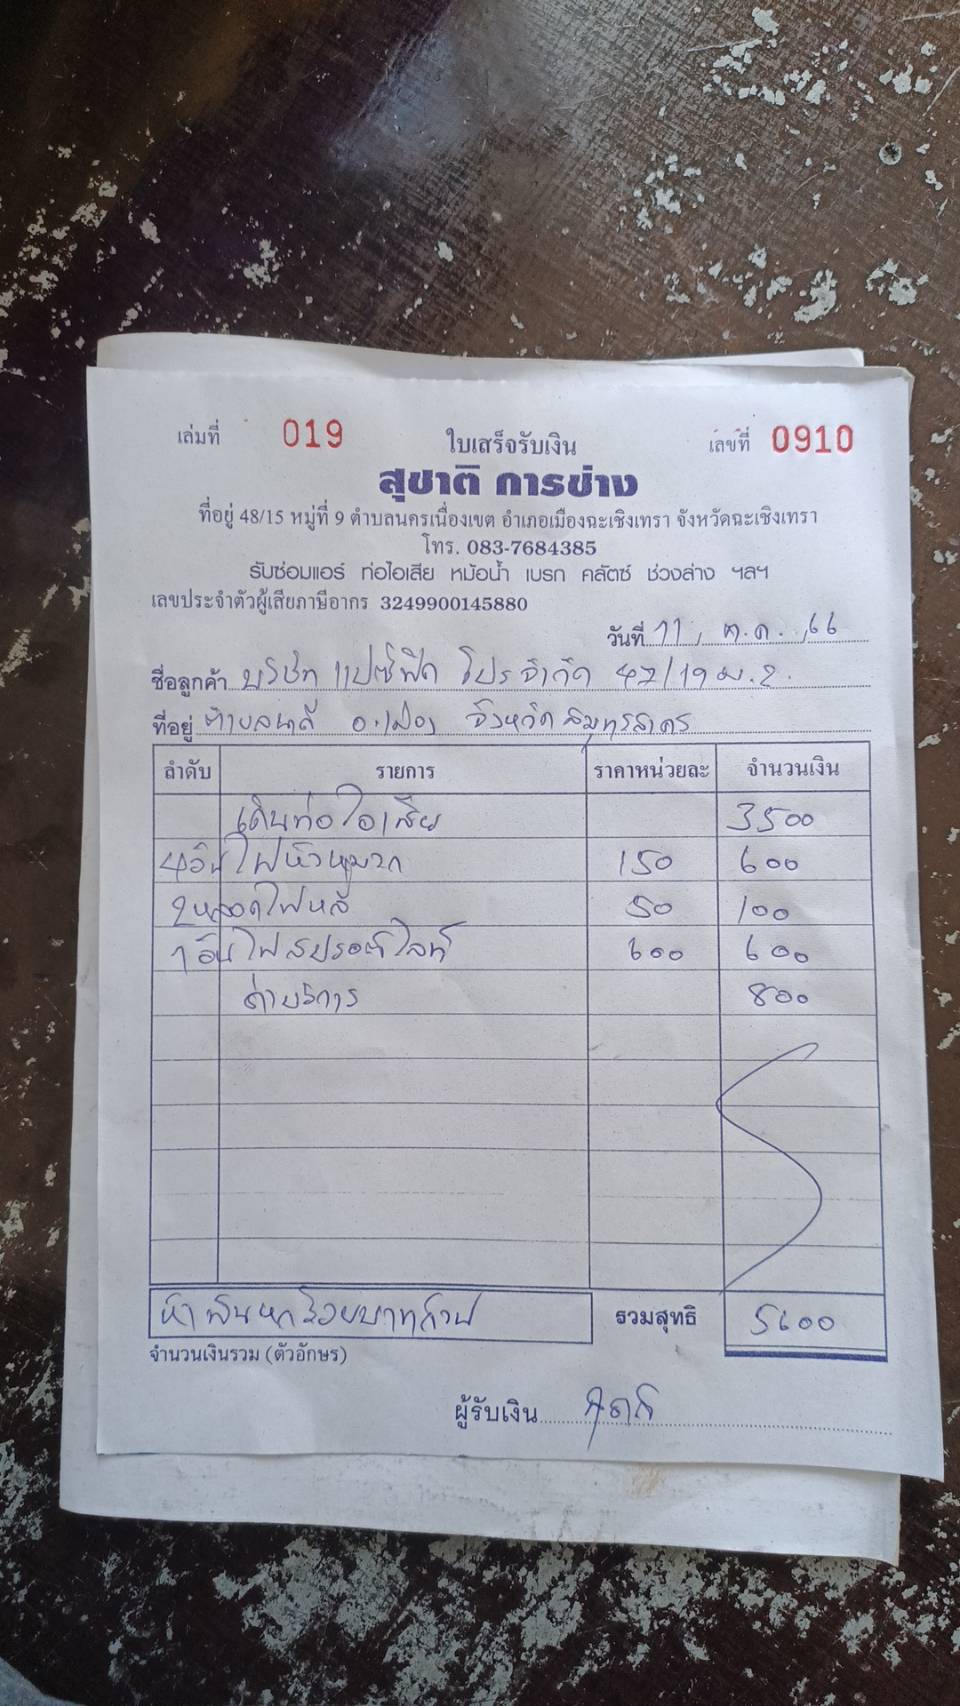 เล่มที่ 019 ใบเสร็จรับเงิน เลขที่ 0910
สุชาติ การช่าง
ที่อยู่ 48/15 หมู่ที่ 9 ตำบลนครเนื่องเขต อำเภอเมืองฉะเชิงเทรา จังหวัดฉะเชิงเทรา
โทร. 083-7684385
รับซ่อมแอร์ ท่อไอเสีย หม้อน้ำ เบรก คลัตช์ ช่วงล่าง ฯลฯ
เลขประจำตัวผู้เสียภาษีอากร 3249900145880
วันที่ 11, ต.ค. ,66
ชื่อลูกค้า บริษัท แปซิฟิค โปร จำกัด 47/19 ม.2.
ที่อยู่ ตำบลนาดี อ.เมือง จังหวัด สมุทรสาคร
ลำดับ รายการ ราคาหน่วยละ จำนวนเงิน
เดินท่อไอเสีย 3500
4 อัน ไฟหัวหมวก 150 600
2 หลอดไฟหลั 50 100
1 อัน ไฟสปรอตไลท์ 600 600
ค่าบริการ 800
ห้าพันหกร้อยบาทถ้วน รวมสุทธิ 5600
จำนวนเงินรวม (ตัวอักษร)
ผู้รับเงิน